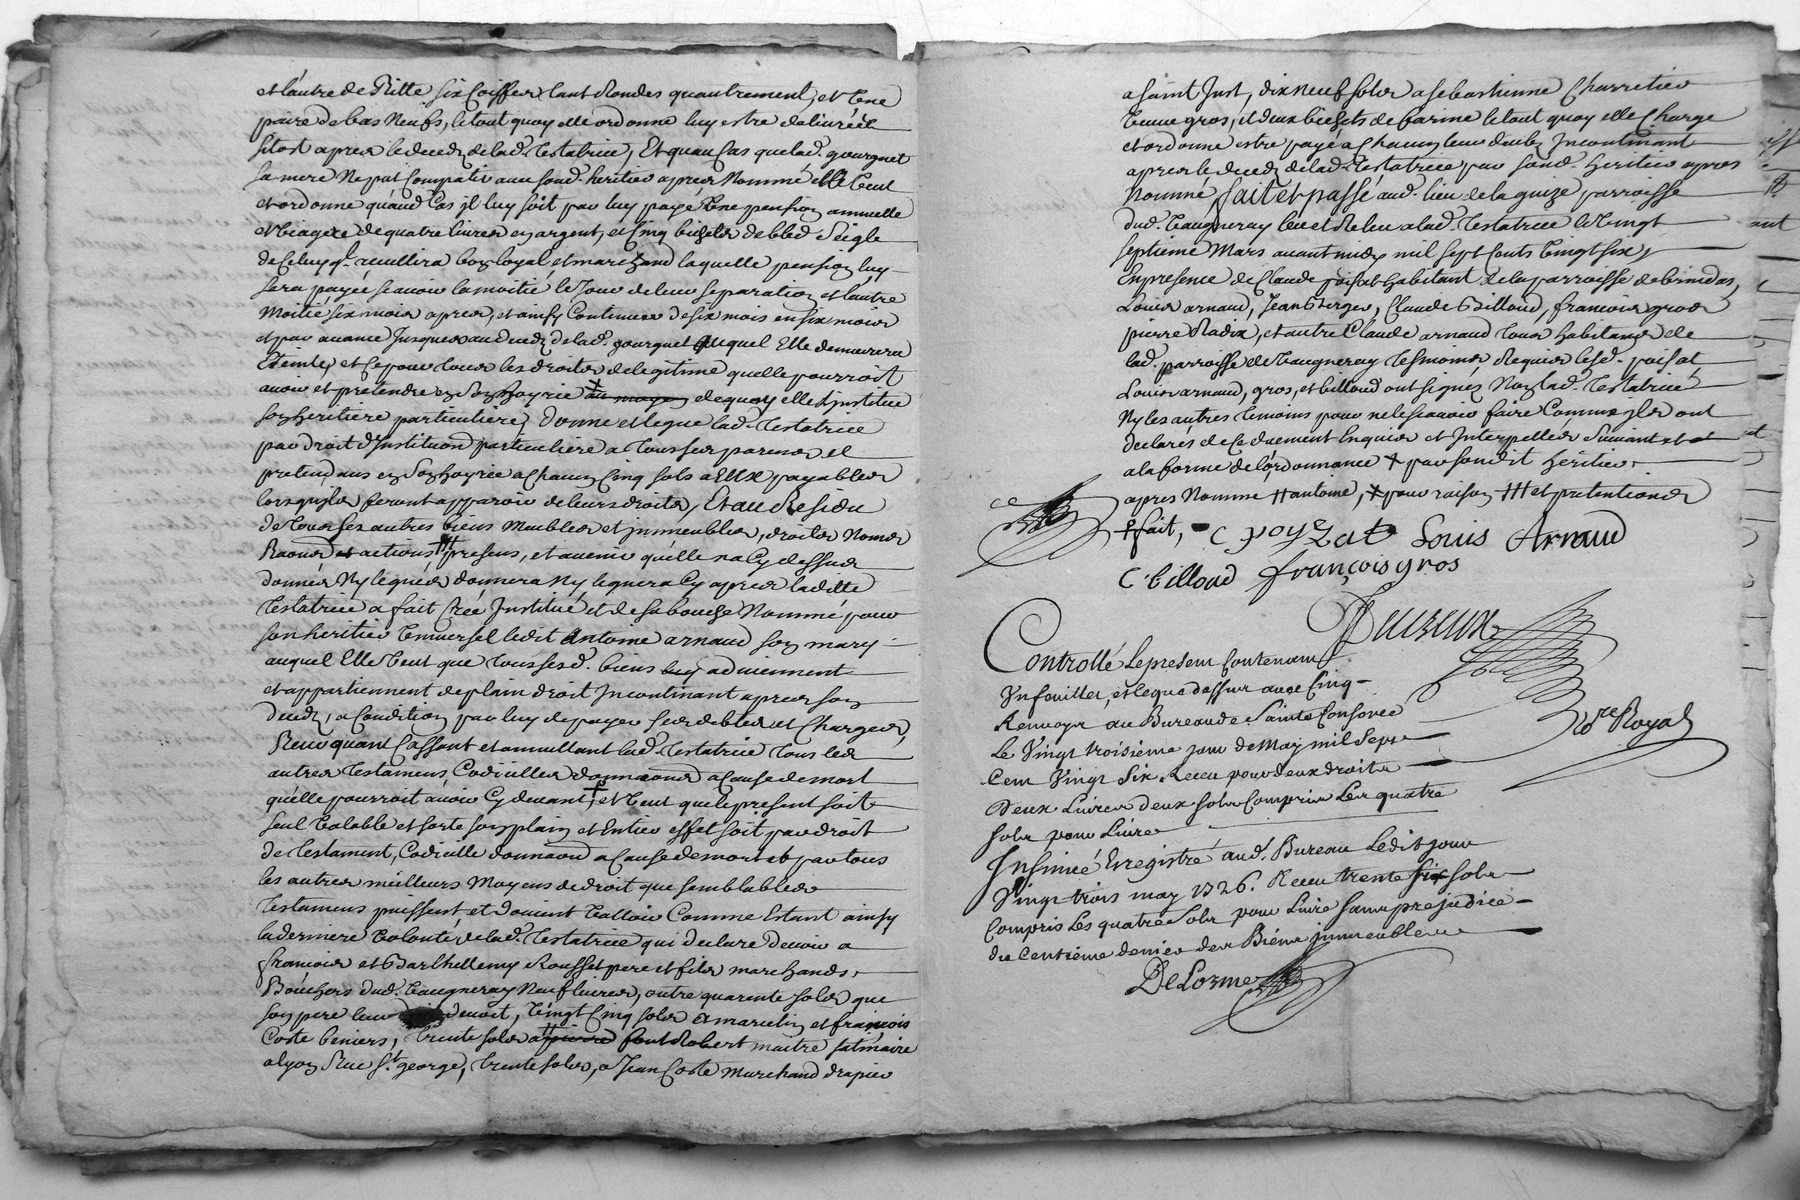 et l'autre de Ritte six coiffes tant Rondes qu'autrement, et Une
paire de bas neufs, le tout quoy elle ordonne luy estre delivrée
sitost apres le deceds de lad. Testatrice, Et au cas que lad. gourguet
sa mere ne put compatir avec sond. heritier apres nommé elle veut
et ordonne qu'aud. Cas jl luy soit par luy payé Une pension annuelle
et viagere de quatre livres en argent, et cinq bichets de bled seigle
de celuy ql. recuillira bon loyal et marchand laquelle pension luy
sera payée sçavoir la moitié le Jour de leur separation et l'autre
Moitié six mois apres, et ainsy Continuer de six mois en six mois
et par avance Jusques au deceds de lad. gourguet auquel Elle demeurera
Eteinte, et ce pour tous les droits de legitime quelle pourroit
avoir et pretendre en son hoyrie + au moyen de quoy elle L'institue
son heritiere particuliere, Donne et legue lad. Testatrice
par droit d'Institution particuliere a tous ses parens et
pretendans en son hoyrie a chacun cinq sols a EUX payables
lorsqu'ils feront apparoir de leurs droits, Et au Residu
de tous ses autres biens Meubles et jmmeubles, droits Noms
Raisons et actions ++ presens, et avenir qu'elle n'a Cy dessus
donnés Ny legués donnera Ny leguera Cy apres ladite
Testatrice a fait Créé Institué et de sa bouche Nommé pour
son heritier Universel ledit Antoine arnaud son mary
auquel Elle Veut que tous sesd. biens luy adviennent
et appartiennent de plain droit Incontinant apres son
deceds, a Condition par luy de payer ses debtes et Charges,
Revoquant Cassant et annullant lad. Testatrice tous les
autres Testamens, Codicilles donnaons a cause de mort
qu'elle pourroit avoir Cy devant +, et Veut que le present soit
seul Valable et sorte son plain et Entier effet soit par droit
de Testament, Codicille donnaon a Cause de mort et par tous
les autres meilleurs Moyens de droit que semblables
Testamens puissent et doivent Valloir Comme Estant ainsy
la derniere Volonté de lad. Testatrice qui declare devoir a
francois et Barthellemy Rousset pere et fils marchands
Bouchers dud. Vaugneray Neuf livres, outre quarente sols que
son pere leur devoit, Vingt Cinq sols a marcelin et françois
Coste beniers, trente sols a ++ pierre font Robert maitre satinaire
a lyon Rue St. george, trente sols, a Jean Coste Marchand drapier
a saint Just, dix neuf sols a sebastienne Charretier
Veuve gros, et deux bichets de farine le tout quoy elle Charge
et ordonne estre payé a chacun leur deub Incontinant
apres le deceds de lad. Testatrice par sond. heritier apres
Nommé fait et passé aud. lieu de la guize parroisse
dud. Vaugneray leu et Releu a lad. Testatrice le Vingt
septieme Mars avant midy mil sept Cents Vingt six
En presence de Claude poisat habitant de la parroisse de brindas,
Louis arnaud, Jean Berger, Claude Billoud, francois gros
pierre Radix, et autre Claude arnaud tous habitans de
lad. parroisse de Vaugneray Tesmoins Requis lesd. poisat
Louis arnaud, gros, et billoud ont signés Non lad. Testatrice
Ny les autres temoins pour ne le scavoir faire Comme ils ont
declarés de ce duement Enquis et Interpellés suivant et
a la forme de l'ordonnance + par sondit heritier
apres Nommé ++ antoine, + pour raison +++ et pretentions
+ fait,
C poyzat Louis Arnaud
C billoud françois gros
Controllé le present Contenant
Un feuillet, et leque dessus avec Cinq
Renvoys au Bureau de Sainte Consorce
Le Vingt troisième jour de May mil sept
Cent Vingt six Receu pour deux droits
Deux Livres deux sols Compris Les quatre
sols pour Livre
nore Royal
Insinué Enregistré aud. Bureau Ledit jour
Vingt trois may 1726. Receu trente six sols
Compris Les quatre sols pour Livre sans prejudice
du Centième denier des Biens jmmeubles
DeLorme